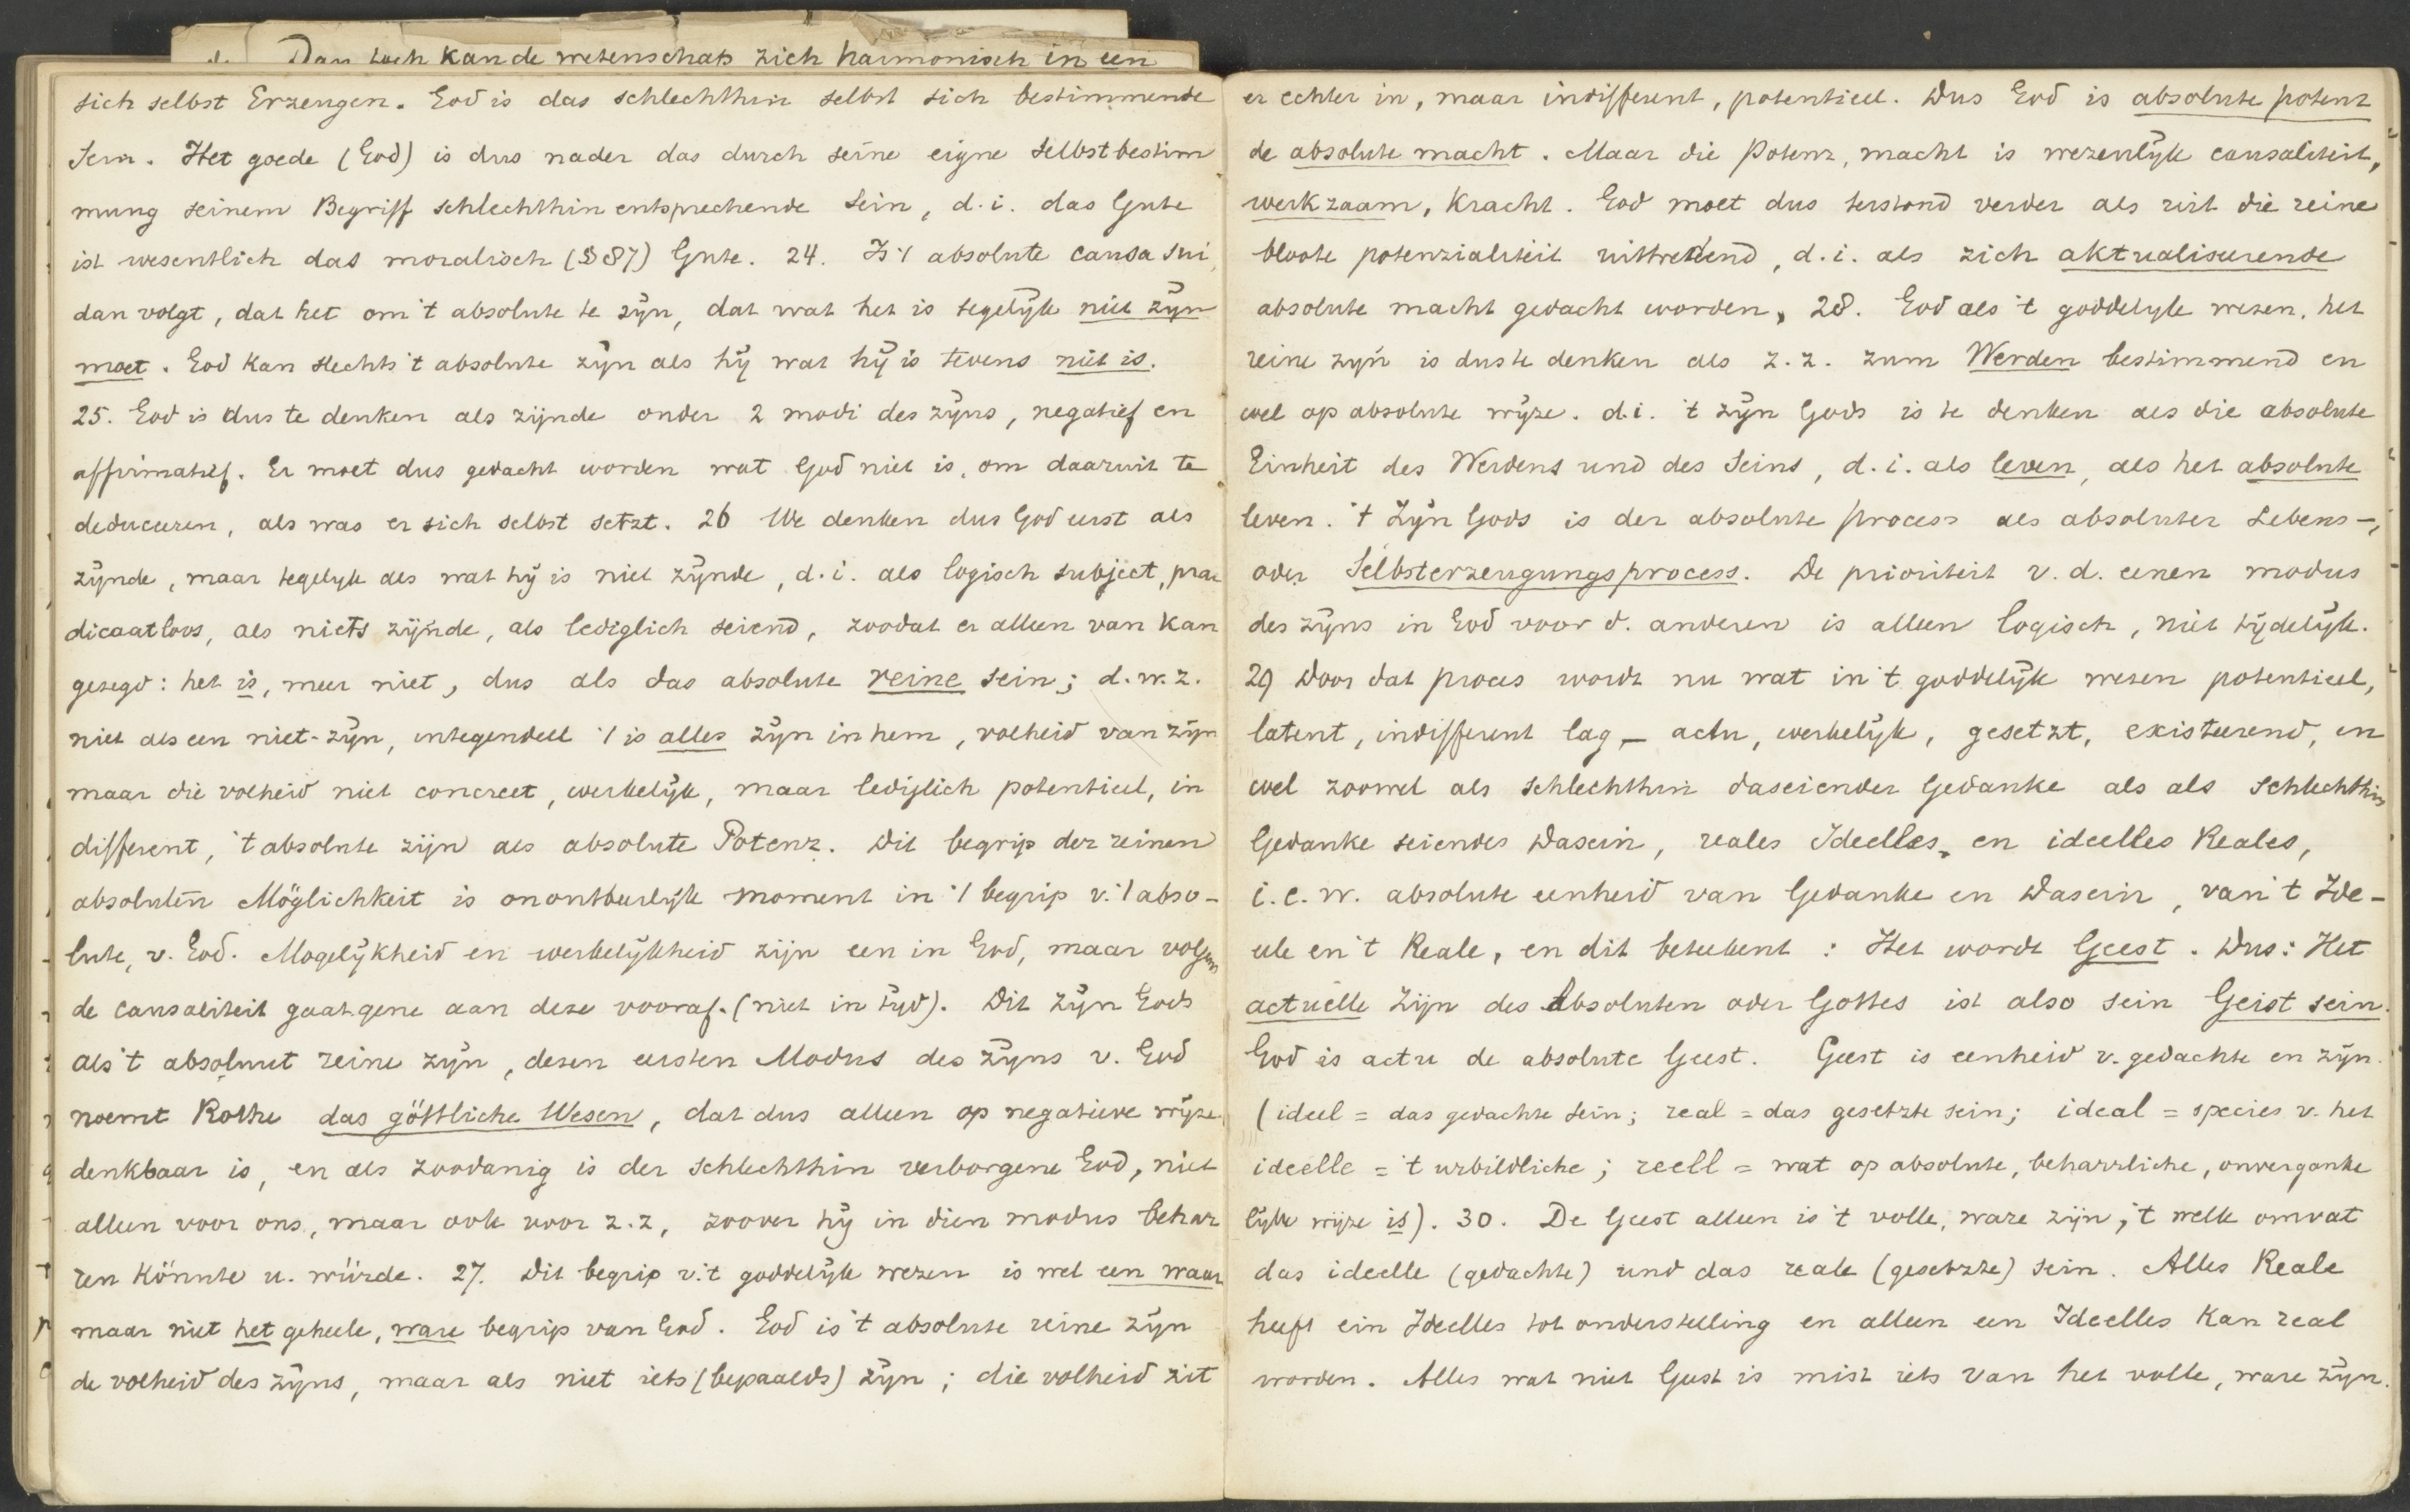 Dan toch kan de wetenschap zich harmonisch in een
sich selbst Erzeugen. God is das schlechthin selbst sich bestimmende
Sein. Het goede (God) is dus nader das durch seine eigne selbstbestim
mung seinem Begriff schlechthin entsprechende Sein, d.i. das Gute
ist wesentlich das moralisch (§87) Gute. 24. Is 't absolute causa sui,
dan volgt, dat het om 't absolute te zijn, dat wat het is tegelijk niet zijn
moet. God kan slechts 't absolute zijn als hij wat hij is tevens niet is.
25. God is dus te denken als zijnde onder 2 modi des zijns, negatief en
affirmatief. Er moet dus gedacht worden wat God niet is, om daaruit te
deduceeren, als was er sich selbst setzt. 26 We denken dus God eerst als
zijnde, maar tegelijk als wat hij is niet zijnde, d.i. als logisch subject, prae
dicaatloos, als niets zijnde, als lediglich seiend, zoodat er alleen van kan
gezegd: het is, meer niet, dus als das absolute reine sein; d.w.z.
niet als een niet-zijn, integendeel 't is alles zijn in hem, volheid van zijn
maar die volheid niet concreet, werkelijk, maar lediglich potentieel, in
different, 't absolute zijn als absolute Potenz. Dit begrip der reinen
absoluten Möglichkeit is onontbeerlijk moment in 't begrip v. 't abso-
lute, v. God. Mogelijkheid en werkelijkheid zijn een in God, maar volgens
de causaliteit gaat gene aan deze vooraf. (niet in tijd). Dit zijn Gods
als 't absoluut reine zijn, dezen eersten Modus des Zijns v. God
noemt Rothe das göttliche Wesen, dat dus alleen op negatieve wijze
denkbaar is, en als zoodanig is der schlechthin verborgene God, niet
alleen voor ons, maar ook voor z.z, zoover hij in dien modus behar
ren könnte u. würde. 27. Dit begrip v. 't goddelijk wezen is wel een waar
maar niet het geheele, ware begrip van God. God is 't absolute reine zijn
de volheid des zijns, maar als niet iets (bepaalds) zijn; die volheid zit
er echter in, maar indifferent, potentieel. Dus God is absolute potenz
de absolute macht. Maar die Potenz, macht is wezenlijk causaliteit,
werkzaam, kracht. God moet dus terstond verder als uit die reine
bloote potenzialiteit uittredend, d.i. als zich aktualiseerende
absolute macht gedacht worden, 28. God als 't goddelijk wezen, het
reine zijn is dus te denken als z.z. zum Werden bestimmend en
wel op absolute wijze. d.i. 't zijn Gods is te denken als die absolute
Einheit des Werdens und des Seins, d.i. als leven, als het absolute
leven. 't Zijn Gods is der absolute process als absoluter Lebens-,
oder Selbsterzeugungsprocess. De prioriteit v.d. eenen modus
des zijns in God voor d. anderen is alleen logisch, niet tijdelijk.
29 Door dat proces wordt nu wat in 't goddelijk wezen potentieel,
latent, indifferent lag, – actu, werkelijk, gesetzt, existeerend, en
wel zoowel als schlechthin daseiender Gedanke als als schlechthin
Gedanke seiendes Dasein, reales Ideelles, en ideelles Reales,
i.e.w. absolute eenheid van Gedanke en Dasein, van 't Ide-
ele en 't Reale, en dit beteekent: Het wordt Geest. Dus: Het
actuelle zijn des Absoluten oder Gottes ist also sein Geist sein.
God is actu de absolute Geest. Geest is eenheid v. gedachte en zijn.
(ideel = das gedachte sein; real = das gesetzte sein; ideal = species v. het
ideelle = 't urbildliche; reell = wat op absolute, beharrliche, onverganke
lijke wijze is). 30. De Geest alleen is 't volle, ware zijn, 't welk omvat
das ideelle (gedachte) und das reale (gesetzte) sein. Alles Reale
heeft ein Ideelles tot onderstelling en alleen een Ideelles kan real
worden. Alles wat niet Geest is mist iets van het volle, ware zijn.